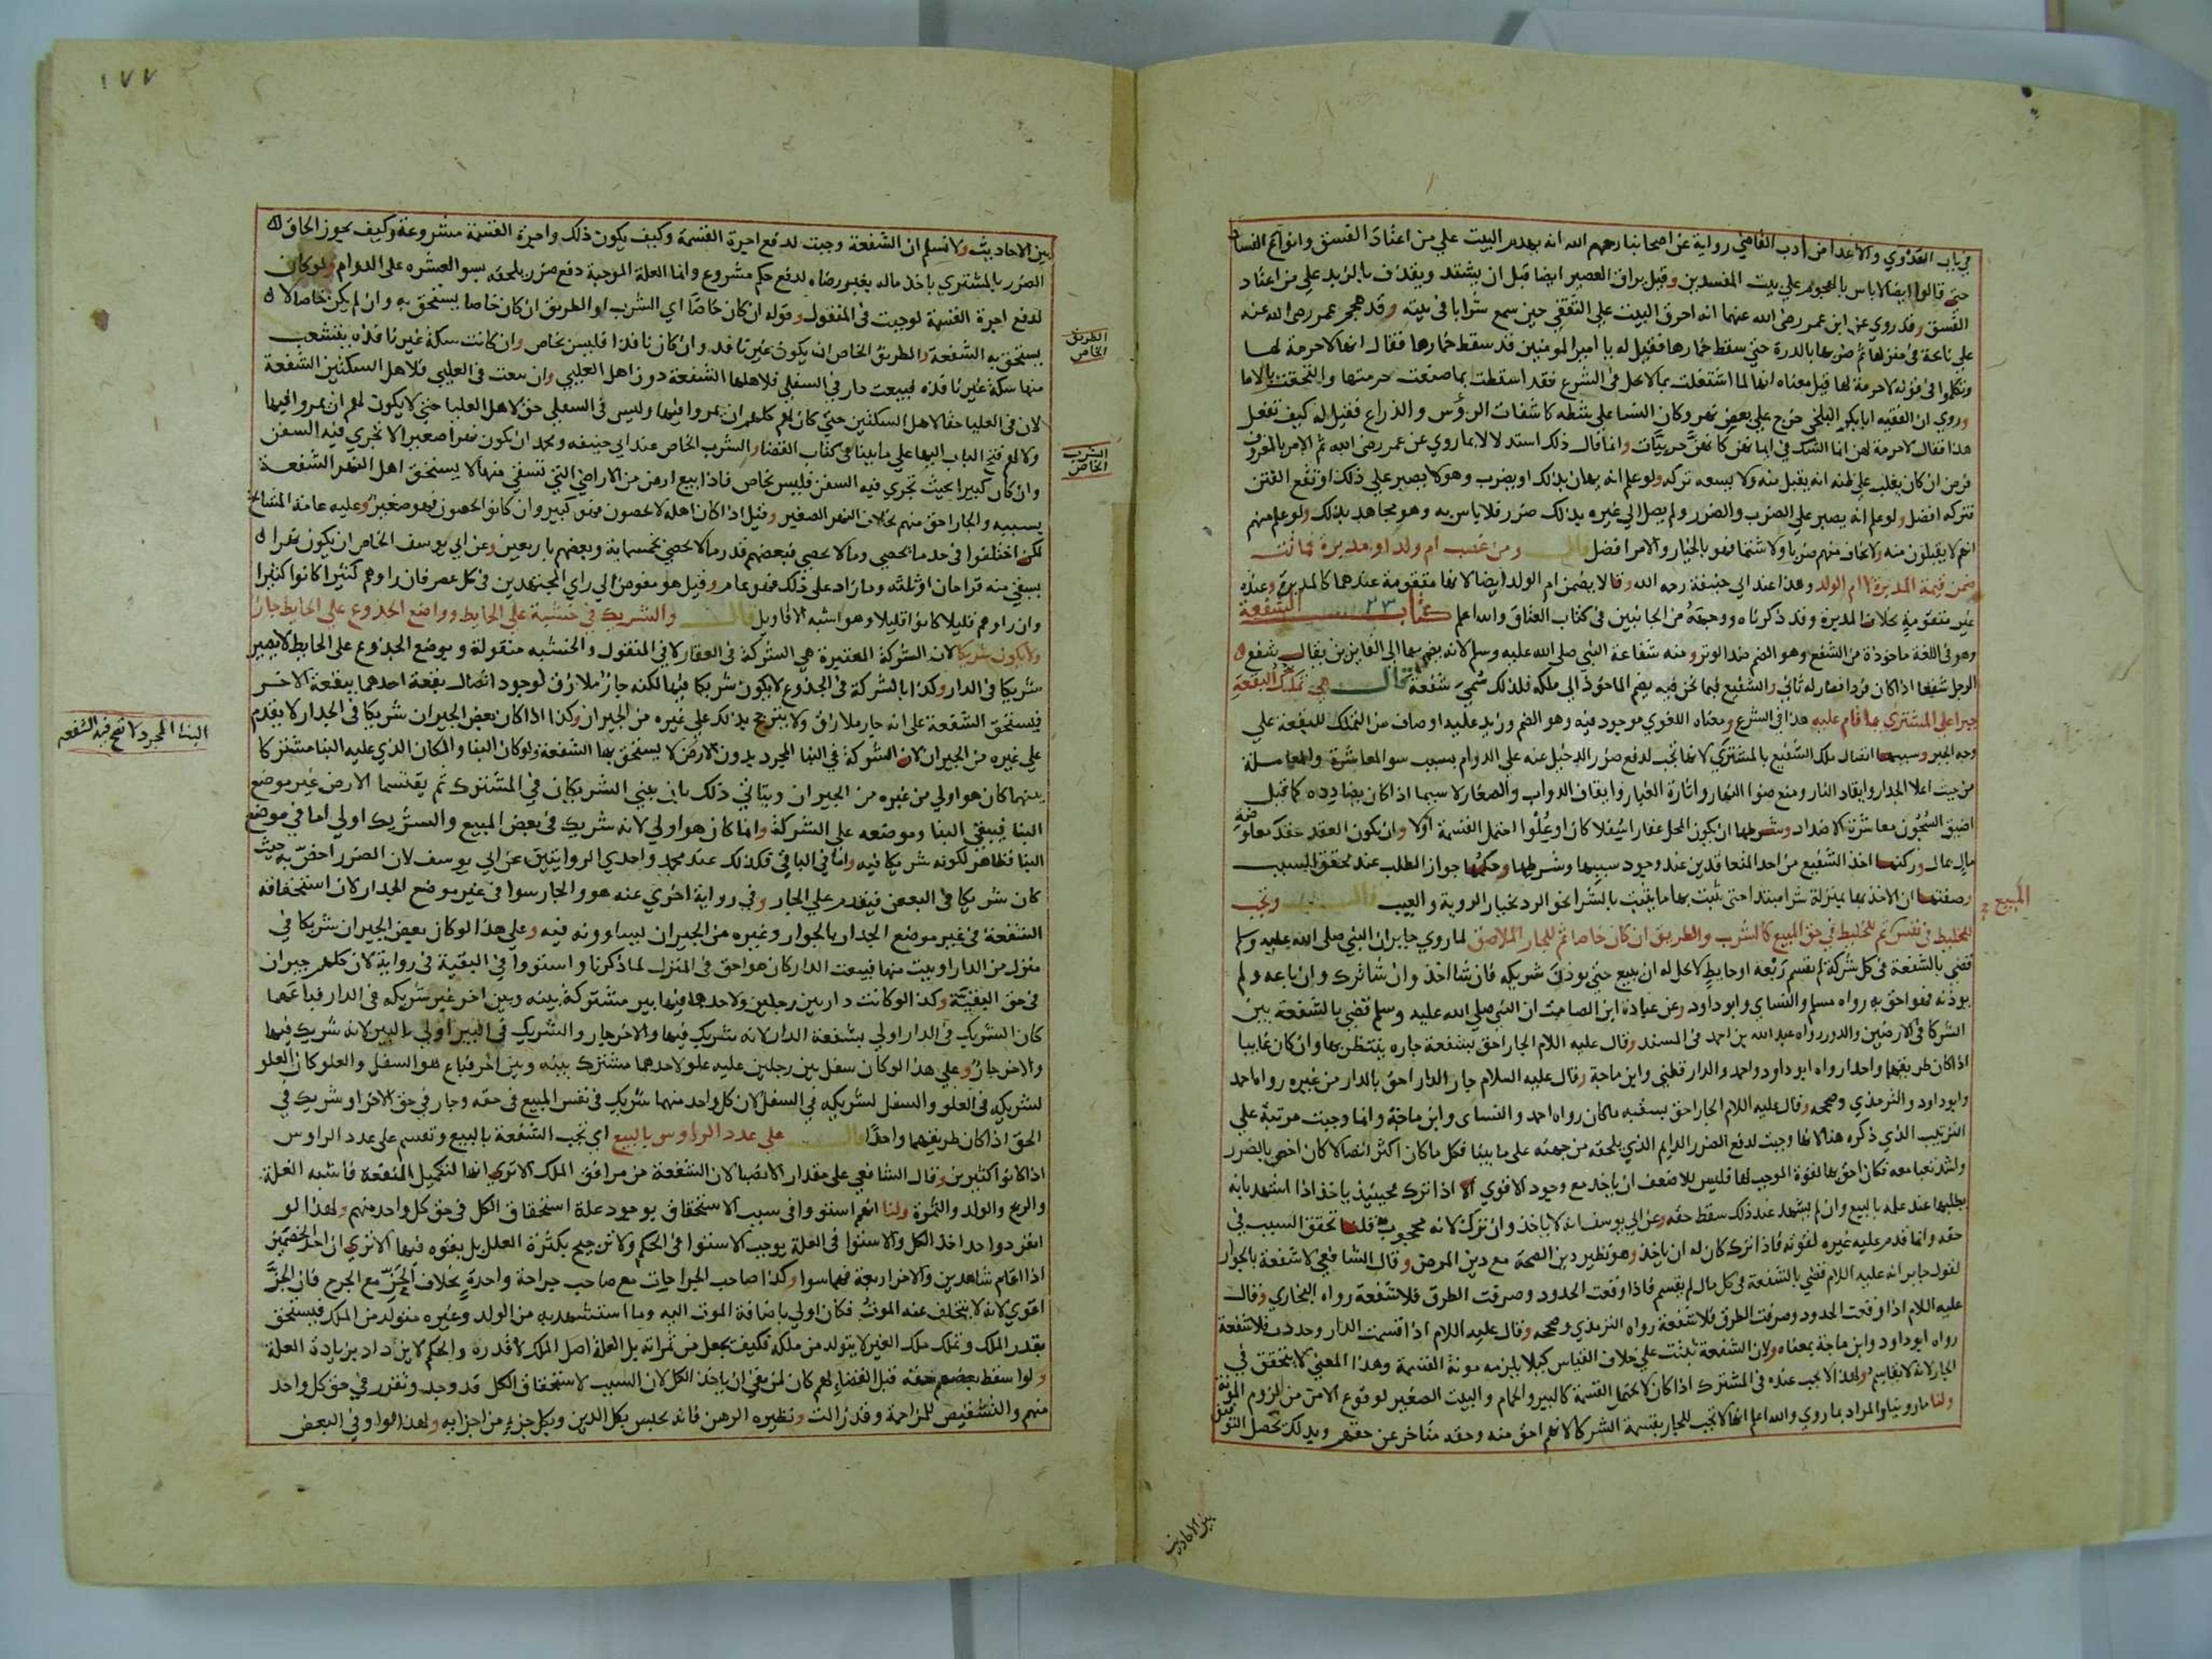 في باب العدوي والاعدا من أدب القاضي رواية عن اصحابنا رحمهم الله انه يهدم البيت علي من اعتاد الفسق وانواع الفساد
حتي قالوا ايضا لا باس بالهجوم علي بيت المفسدين وقيل يراق العصير ايضا قبل ان يشتد ويقذف بالزبد علي من اعتاد
الفسق وقد روي عن ابن عمر رضي الله عنهما انه احرق البيت علي الثقفي حين سمع شرابا في بيته وقد هجم عمر رضي الله عنه
علي نائحة في منزلها ثم ضربها بالدرة حتي سقط خمارها فقيل له يا امير المومنين قد سقط خمارها فقال انها لا حرمة لها
وتكلموا في قوله لا حرمة لها قيل معناه انها لما اشتغلت بما لا يحل في الشرع فقد اسقطت بما صنعت حرمتها والتحقت بالاما
وروي ان الفقيه ابا بكر البلخي خرج علي بعض نهر وكان النسا علي شطه كاشفات الرؤس والذراع فقيل له كيف تفعل
هذا فقال لا حرمة لهن انما الشك في ايمانهن كانهن حربيات وانما قال ذلك استدلالا بما روي عن عمر رضي الله ثم الامر بالمعروف
فرض ان كان يغلب علي ظنه انه يقبل منه ولا يسعه تركه ولو علم انه يهان بذلك او يضرب وهو لا يصبر علي ذلك او تقع الفتن
فتركه افضل ولو علم انه يصبر علي الضرب والضرر ولم يصل الي غيره بذلك ضرر فلا باس به وهو مجاهد بذلك ولو علم منهم
انهم لا يقبلون منه ولا يخاف منهم ضربا ولا شتما فهو بالخيار والامر افضل قال ومن غصب ام ولد او مدبرة فماتت
ضمن قيمة المدبرة لا ام الولد وهذا عند ابي حنيفة رحمه الله وقالا يضمن ام الولد ايضا لانها متقومة عندهما كالمدبرة وعنده
غير متقومة بخلاف المدبرة وقد ذكرناه ووجهه من الجانبين في كتاب العتاق والله اعلم كتاب ٢٣ الشفعة
وهو في اللغة ماخوذة من الشفع وهو الضم ضد الوتر ومنه شفاعة النبي صلي الله عليه وسلم لانه يضم بها الي الفايزين يقال شفع
الرجل شفعا اذا كان فردا فصار له ثاني والشفيع فيما نحن فيه يضم الماخوذ الي ملكه فلذلك سمي شفعة قال هي تملك البقعة
جبرا علي المشتري بما قام عليه هذا في الشرع ومعناه اللغوي موجود فيه وهو الضم وزيد عليه اوصاف من التملك للبقعة علي
وجه الجبر وسببها اتصال ملك الشفيع بالمشتري لانها تجب لدفع ضرر الدخيل عنه علي الدوام بسبب سو المعاشرة والمعاملة
من حيث اعلا الجدار وايقاد النار ومنع ضوا النهار واثارة الغبار وايقاف الدواب والصغار لا سيما اذا كان يضادده كما قيل
اضيق السجون معاشرة الاضداد وشرطها ان يكون المحل عقارا سفلا كان او علوا احتمل القسمة اولا وان يكون العقد عقد معاوضة
مال بمال وركنها اخذ الشفيع من احد المتعاقدين عند وجود سببها وشرطها وحكمها جواز الطلب عند تحقق السبب
وصفتها ان الاخذ بها بمنزلة شرا مبتدا حتي ثبت بها ما يثبت بالشرا نحو الرد بخيار الروية والعيب قال وتجب
للخليط في نفس المبيع ثم للخليط في حق المبيع كالشرب والطريق ان كان خاصا ثم للجار الملاصق لما روي جابر ان النبي صلي الله عليه وسلم
قضي بالشفعة في كل شركة لم تقسم ربعة او حايط لا يحل له ان يبيع حتي يوذن شريكه فان شا اخذ وان شا ترك وان باعه ولم
يوذنه فهو احق به رواه مسلم والنساي وابو داود وعن عبادة ابن الصامت ان النبي صلي الله عليه وسلم قضي بالشفعة بين
الشركا في الارضين والدور رواه عبد الله بن احمد في المسند وقال عليه اللام الجار احق بشفعة جاره ينتظر بها وان كان غايبا
اذا كان طريقهما واحدا رواه ابو داود واحمد والدارقطني وابن ماجة وقال عليه السلام جار الدار احق بالدار من غيره رواه احمد
وابو داود والترمذي وصححه وقال عليه اللام الجار احق بسقبه ما كان رواه احمد والنساي وابن ماجة وانما وجبت مرتبة علي
الترتيب الذي ذكره هنا لانها وجبت لدفع الضرر الدايم الذي يلحقه من جهته علي ما بينا فكل ما كان اكثر اتصالا كان اخص بالضرر
واشد تعبا معه فكان احق بها لقوة الموجب لها فليس للاضعف ان ياخذ مع وجود الاقوي الا اذا ترك فحينيذ ياخذ اذا استهد بانه
يطلبها عند علمه بالبيع وان لم يشهد عند ذلك سقط حقه وعن ابي يوسف انه لا ياخذ وان ترك لانه محجوب به قلنا تحقق السبب في
حقه وانما قدم عليه غيره لقوته فاذا ترك كان له ان ياخذ وهو نظير دين الصحة مع دين المرض وقال الشافعي لا شفعة بالجوار
لقول جابر انه عليه اللام قضي بالشفعة في كل مال لم يقسم فاذا وقعت الحدود وصرفت الطرق فلا شفعة رواه البخاري وقال
عليه اللام اذا وقعت الحدود وصرفت الطرق فلا شفعة رواه الترمذي وصححه وقال عليه اللام اذا قسمت الدار وحددت فلا شفعة
رواه ابو داود وابن ماجة بمعناه ولان الشفعة ثبتت علي خلاف القياس كيلا يلزمه مونة القسمة وهذا المعني لا يتحقق في
الجار لانه لا يقاسم ولهذا لا يجب عنده في المشترك اذا كان لا يحتمل القسمة كالبير والحمام والبيت الصغير لوقوع الامن من لزوم المونة
ولنا ما روينا والمراد بما روي والله اعلم انها لا تجب للجار بقسمة الشركا لانهم احق منه وحقه متاخر عن حقهم وبذلك تحصل التوفيق
المبيع
بين الاحاديث
١٧٧
بين الاحاديث ولا نسلم ان الشفعة وجبت لدفع اجرة القسمة وكيف يكون ذلك واجرة القسمة مشروعة وكيف يجوز الحاق
الضرر بالمشتري باخذ ماله بغير رضاه لدفع حكم مشروع وانما العلة الموجبة دفع ضرر يلحقه بسو العشره علي الدوام ولو كان
لدفع اجرة القسمة لوجبت في المنقول وقوله ان كان خاصا اي الشرب او الطريق ان كان خاصا يستحق به وان لم يكن خاصا لا
يستحق به الشفعة والطريق الخاص ان يكون غير نافد وان كان نافذا فليس بخاص وان كانت سكة غير نافذه يتشعب
منها سكة غير نافذه فبيعت دار في السفلي فلاهلها الشفعة دون اهل العليي وان بيعت في العليي فلاهل السكتين الشفعة
لان في العليا حقا لاهل السكتين حتي كان لهم كلهم ان يمروا فيها وليس في السفلي حق لاهل العليا حتي لا يكون لهم ان يمروا فيها
ولا لهم فتح الباب اليها علي ما بينا في كتاب القضا والشرب الخاص عند ابي حنيفه ومحمد ان يكون نهرا صغيرا لا تجري فيه السفن
وان كان كبيرا بحيث تجري فيه السفن فليس بخاص فاذا بيع ارض من الاراضي التي تسقي منها لا يستحق اهل النهر الشفعة
بسببه والجار احق منهم بخلاف النهر الصغير وقيل اذا كان اهله لا يحصون فهو كبير وان كانوا يحصون فهو صغير وعليه عامة المشايخ
لكن اختلفوا في حد ما يحصي وما لا يحصي فبعضهم قدر ما لا يحصي بخمسماية وبعضهم باربعين وعن ابي يوسف الخاص ان يكون نهرا
يسقي منه قراحان او ثلثه وما زاد علي ذلك فهو عام وقيل هو مفوض الي راي المجتهدين في كل عصر فان راوهم كثيرا كانوا كثيرا
وان راوهم قليلا كانوا قليلا وهو اشبه الاقاويل قال والشريك في خشبة علي الحايط وواضع الجذوع علي الحايط جار
ولا يكون شريكا لان الشركة المعتبرة هي الشركة في العقار لا في المنقول والخشبه منقولة وبوضع الجذوع علي الحايط لا يصير
شريكا في الدار وكذا بالشركة في الجذوع لا يكون شريكا فيها لكنه جار ملازق لوجود اتصال بقعة احدهما ببقعة الاخر
فيستحق الشفعة علي انه جار ملازق ولا يترجح بذلك علي غيره من الجيران وكذا اذا كان بعض الجيران شريكا في الجدار لا يقدم
علي غيره من الجيران لان الشركة في البنا المجرد بدون الارض لا يستحق بها الشفعة ولو كان البنا والمكان الذي عليه البنا مشتركا
بينهما كان هو اولي من غيره من الجيران ويتاتي ذلك بان يبني الشريكان في المشترك ثم يقتسما الارض غير موضع
البنا فيبقي البنا وموضعه علي الشركة وانما كان هو اولي لانه شريك في بعض المبيع والشريك اولي اما في موضع
البنا فظاهر لكونه شريكا فيه واما في الباقي فكذلك عند محمد واحدي الروايتين عن ابي يوسف لان الضرر اخص به حيث
كان شريكا في البعض فيقدم علي الجار وفي رواية اخري عنه هو والجار سوا في غير موضع الجدار لان استحقاقه
الشفعة في غير موضع الجدار بالجوار وغيره من الجيران يساوونه فيه وعلي هذا لو كان بعض الجيران شريكا في
منزل من الدار او بيت منها فبيعت الدار كان هو احق في المنزل لما ذكرنا واستووا في البقية في رواية لان كلهم جيران
في حق البقية وكذا لو كانت دار بين رجلين ولاحدهما فيها بير مشتركة بينه وبين اخر غير شريكه في الدار فباعها
كان الشريك في الدار اولي بشفعة الدار لانه شريك فيها والاخر جار والشريك في البير اولي بالبير لانه شريك فيها
والاخر جار وعلي هذا لو كان سفل بين رجلين عليه علو لاحدهما مشترك بينه وبين اخر فباع هو السفل والعلو كان العلو
لشريكه في العلو والسفل لشريكه في السفل لان كل واحد منهما شريك في نفس المبيع في حقه وجار في حق الاخر او شريك في
الحق اذا كان طريقهما واحدا قال علي عدد الراوس بالبيع اي تجب الشفعة بالبيع وتقسم علي عدد الراوس
اذا كانوا كثيرين وقال الشافعي علي مقدار الانصبا لان الشفعة من مرافق الملك الا تري انها لتكميل المنفعة فاشبه الغلة
والربح والولد والثمرة ولنا انهم استووا في سبب الاستحقاق بوجود علة استحقاق الكل في حق كل واحد منهم ولهذا لو
انفرد واحد اخذ الكل والاستوا في العلة يوجب الاستوا في الحكم ولا ترجيح بكثرة العلل بل بقوه فيها الا تري ان احد الخصمين
اذا اقام شاهدين والاخر اربعة فهما سوا وكذا صاحب الجراحات مع صاحب جراحة واحدة بخلاف الحز مع الجرح فان الحز
اقوي لانه لا يتخلف عنه الموت فكان اولي باضافة الموت اليه وما استشهد به من الولد وغيره متولد من الملك فيستحق
بقدر الملك وتملك ملك الغير لا يتولد من ملكه فكيف يجعل من ثمراته بل العلة اصل الملك لا قدره والحكم لا يزداد بزيادة العلة
ولو اسقط بعضهم حقه قبل القضا لهم كان لمن بقي ان ياخذ الكل لان السبب لاستحقاق الكل قد وجد وتقرر في حق كل واحد
منهم والتشقيص للمزاحمة وقد زالت ونظيره الرهن فانه يحبس بكل الدين وبكل جزء من اجزايه ولهذا لو اوفي البعض
الطريق
الخاص
الشرب
الخاص
البنا المجرد لا تجب فيه الشفعه